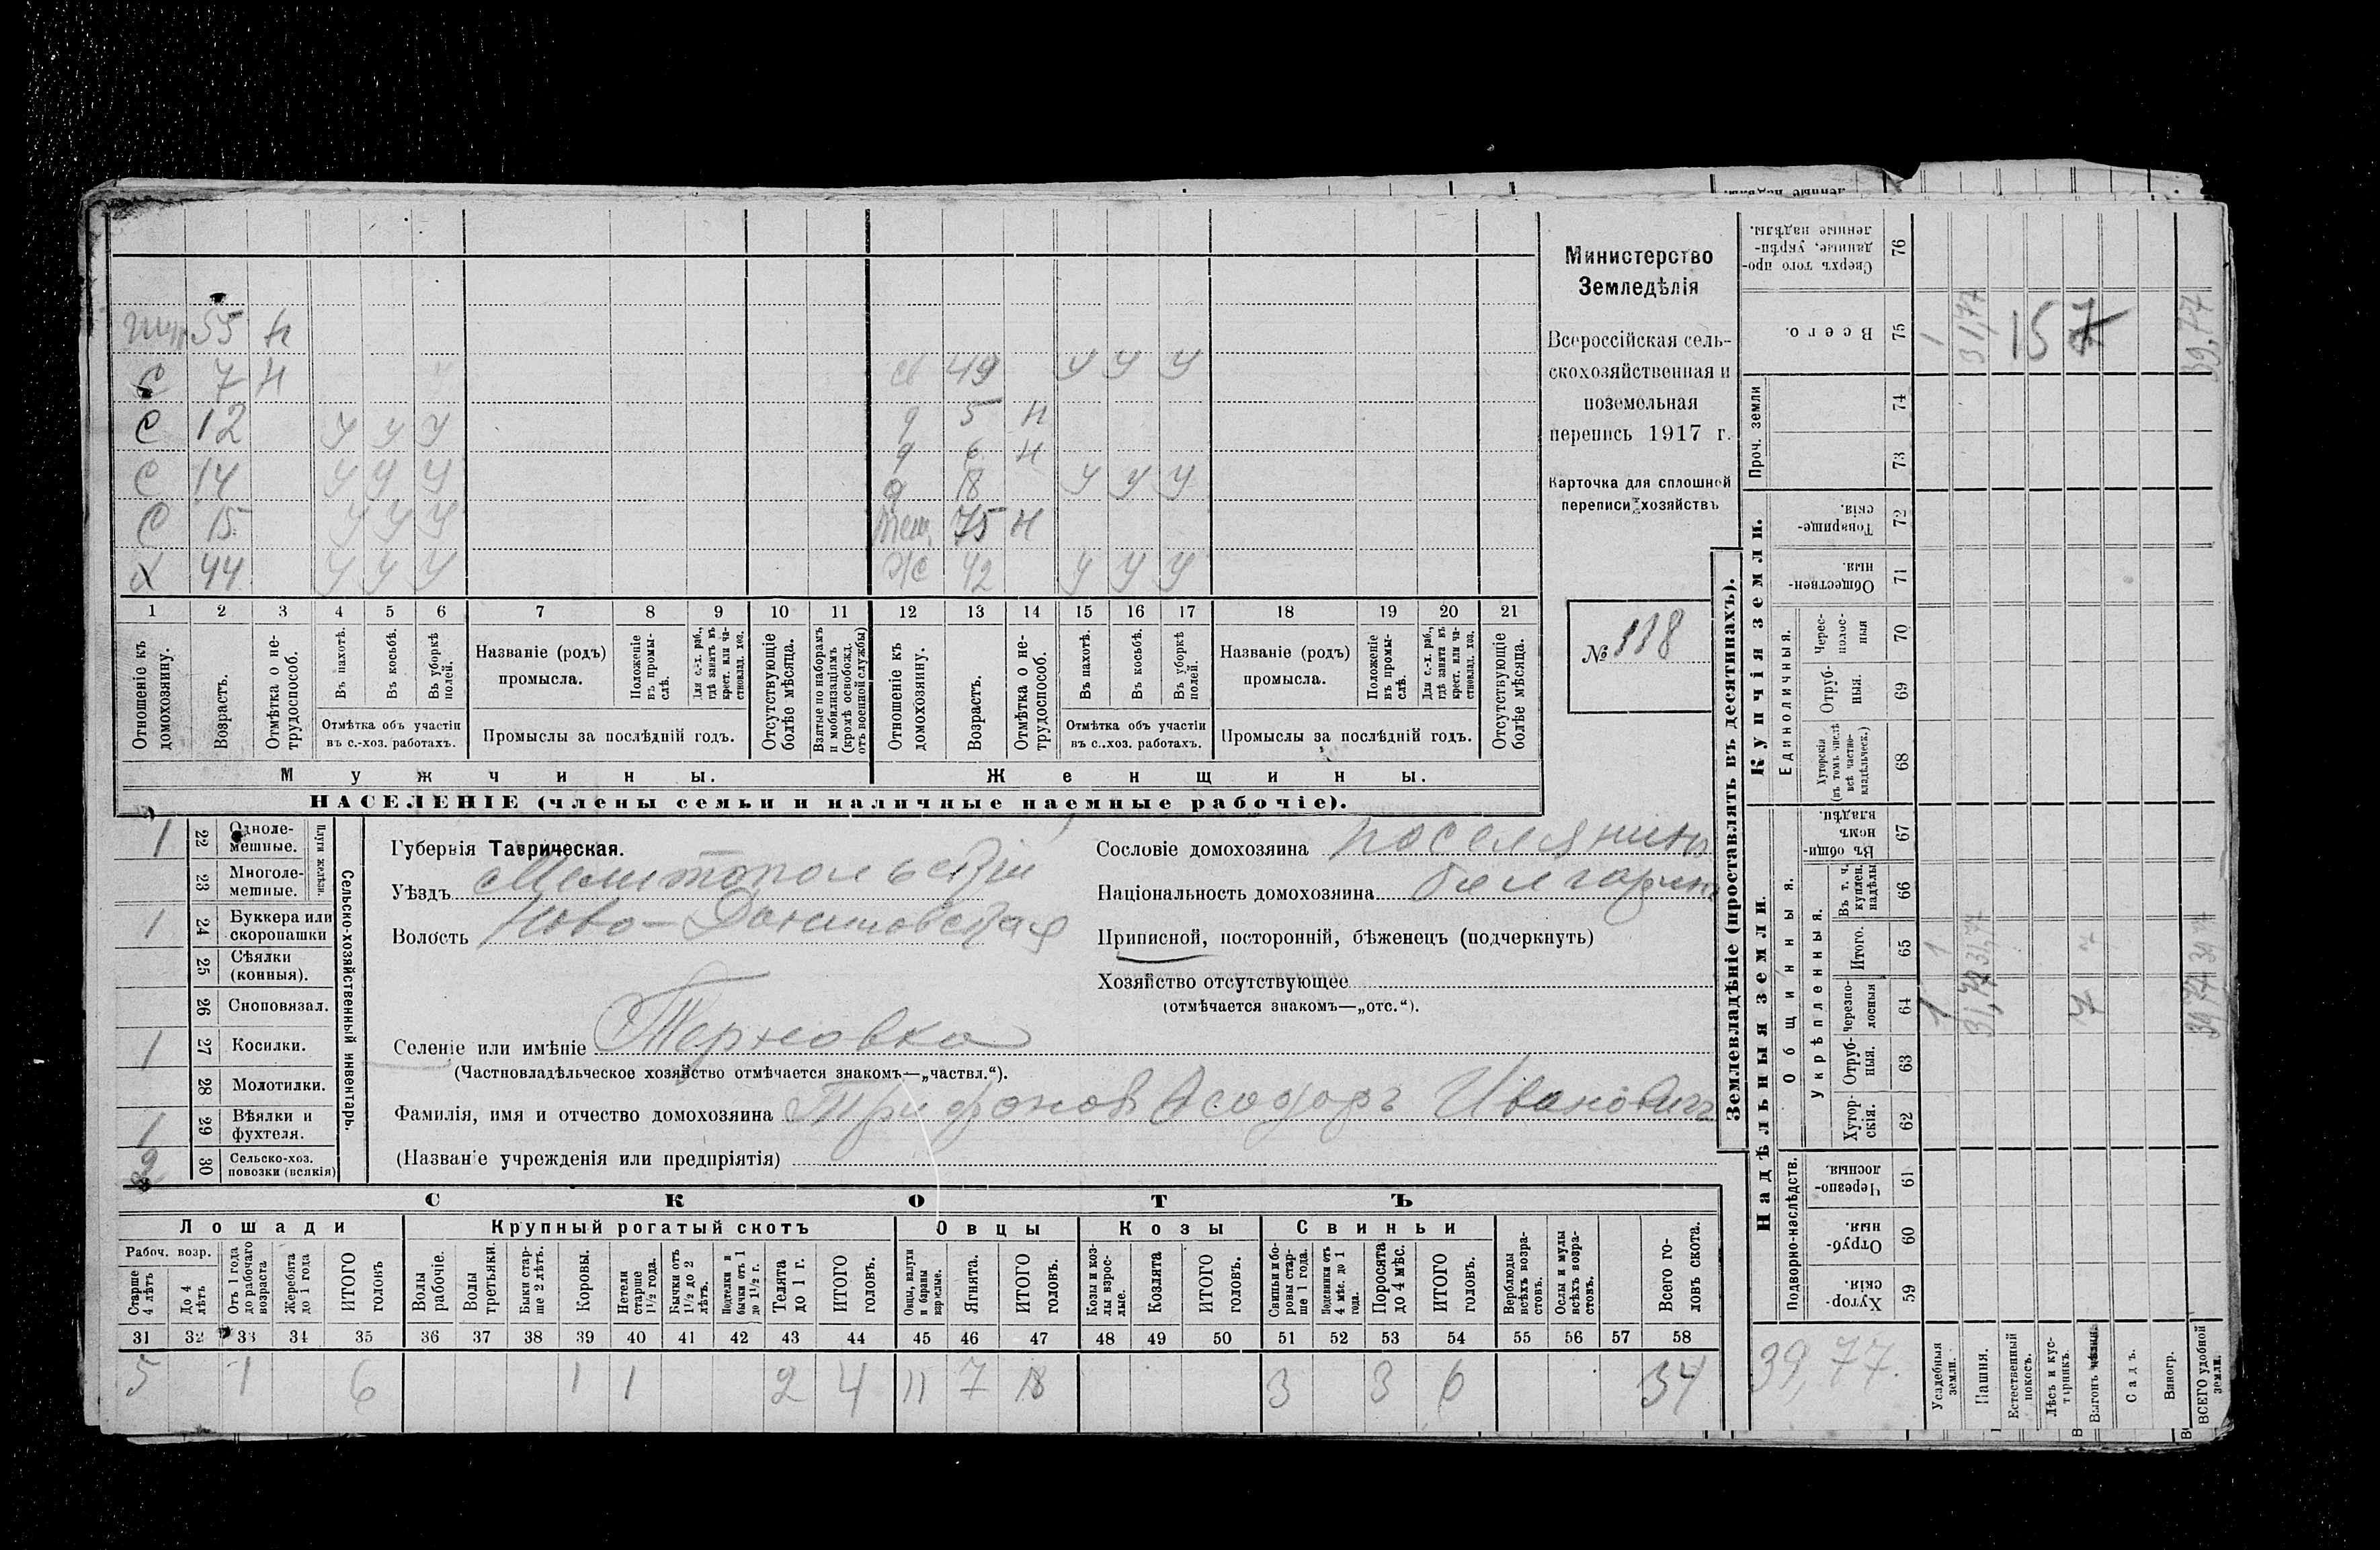 Шур. 55 н
С 7 н
св 49 у у у
С 12 у у у
д 5 н
С 14 у у у
д 6 н
С 15 у у у
д 18 у у у
Тещ. 75 н
Х 44 у у у
Ж 42 у у у
1 2 3 4 5 6 7 8 9 10 11 12 13 14 15 16 17 18 19 20 21
Отношеніе къ домохозяину.
Возрастъ.
Отмѣтка о нетрудоспособ.
Въ пахотѣ.
Въ косьбѣ.
Въ уборкѣ полей.
Отмѣтка объ участіи
въ с.-хоз. работахъ.
Названіе (родъ)
промысла.
Положеніе въ промыслѣ.
Для с.-х. раб., гдѣ занятъ въ крест. или частновлад. хоз.
Промыслы за послѣдній годъ.
Отсутствующіе болѣе мѣсяца.
Взятые по наборамъ и мобилизаціямъ (кромѣ освобожд. отъ военной службы)
Отношеніе къ домохозяину.
Возрастъ.
Отмѣтка о нетрудоспособ.
Въ пахотѣ.
Въ косьбѣ.
Въ уборкѣ полей.
Отмѣтка объ участіи
въ с..хоз. работахъ.
Названіе (родъ)
промысла.
Положеніе въ промыслѣ.
Для с.-х. раб., гдѣ занята въ крест. или частновлад. хоз.
Промыслы за послѣдній годъ.
Отсутствующіе болѣе мѣсяца.
Мужчины.
Женщины.
НАСЕЛЕНІЕ (члены семьи и наличные наемные рабочіе).
Министерство
Земледѣлія
Всероссійская сель-
скохозяйственная и
поземельная
перепись 1917 г.
Карточка для сплошной
переписи хозяйствъ
№ 118
Сельско-хозяйственный инвентарь.
Плуги желѣзн.
1 22 Одноле-
мешные.
23 Многоле-
мешные.
1 24 Буккера или
скоропашки
25 Сѣялки
(конныя).
26 Сноповязал.
1 27 Косилки.
28 Молотилки.
1 29 Вѣялки и
фухтеля.
2 30 Сельско-хоз.
повозки (всякія)
Губернія Таврическая.
Уѣздъ Мелитопольскій
Волость Ново-Даниловская
Селеніе или имѣніе Терновка
(Частновладѣльческое хозяйство отмѣчается знакомъ—„частвл.“).
Фамилія, имя и отчество домохозяина Трифоновъ Ѳеодоръ Ивановичъ
(Названіе учрежденія или предпріятія)
Сословіе домохозяина поселянинъ
Національность домохозяина болгаринъ
Приписной, посторонній, бѣженецъ (подчеркнуть)
Хозяйство отсутствующее
(отмѣчается знакомъ—„отс.“).
СКОТЪ
Лошади
Крупный рогатый скотъ
Овцы
Козы
Свиньи
Рабоч. возр.
Старше 4 лѣтъ
До 4 лѣтъ
Отъ 1 года до рабочаго возраста
Жеребята до 1 года
ИТОГО головъ
Волы рабочіе.
Волы третьяки.
Быки старше 2 лѣтъ.
Коровы.
Нетели старше 1½ года.
Бычки отъ 1½ до 2 лѣтъ.
Подтелки и бычки отъ 1 до 1½ г.
Телята до 1 г.
ИТОГО головъ.
Овцы, валухи и бараны взрослые.
Ягнята.
ИТОГО головъ.
Козы и козлы взрослые.
Козлята
ИТОГО головъ.
Свиньи и боровы старше 1 года.
Подсвинки отъ 4 мѣс. до 1 года.
Поросята до 4 мѣс.
ИТОГО головъ.
Верблюды всѣхъ возрастовъ.
Ослы и мулы всѣхъ возрастовъ.
Всего головъ скота.
31 32 33 34 35 36 37 38 39 40 41 42 43 44 45 46 47 48 49 50 51 52 53 54 55 56 57 58
5 1 6 1 1 2 4 11 7 18 3 3 6 34
Землевладѣніе (проставлять въ десятинахъ).
Надѣльныя земли.
Купчія земли.
Проч. земли
Подворно-наслѣдств.
Общинныя.
Укрѣпленныя.
Единоличныя.
Хуторскія. 59
Отрубныя. 60
Черезполосныя. 61
Хуторскія. 62
Отрубныя. 63
Черезполосныя 64
Итого. 65
Въ т. ч. куплен. надѣлы 66
Въ общинномъ владѣн. 67
Хуторскія (въ томъ числѣ всѣ частновладѣльческ.) 68
Отрубныя. 69
Чересполосныя 70
Общественныя. 71
Товарищескія. 72
73
74
Всего. 75
Сверхъ того проданные, укрѣпленные надѣлы. 76
Усадебныя земли. 1 1 1
Пашня. 31,77 31,77 31,77
Естественный покосъ.
Лѣсъ и кустарникъ.
Выгонъ 7 7
Садъ.
Виногр.
ВСЕГО удобной земли. 39,77 39,77 39,77
157
39,77.